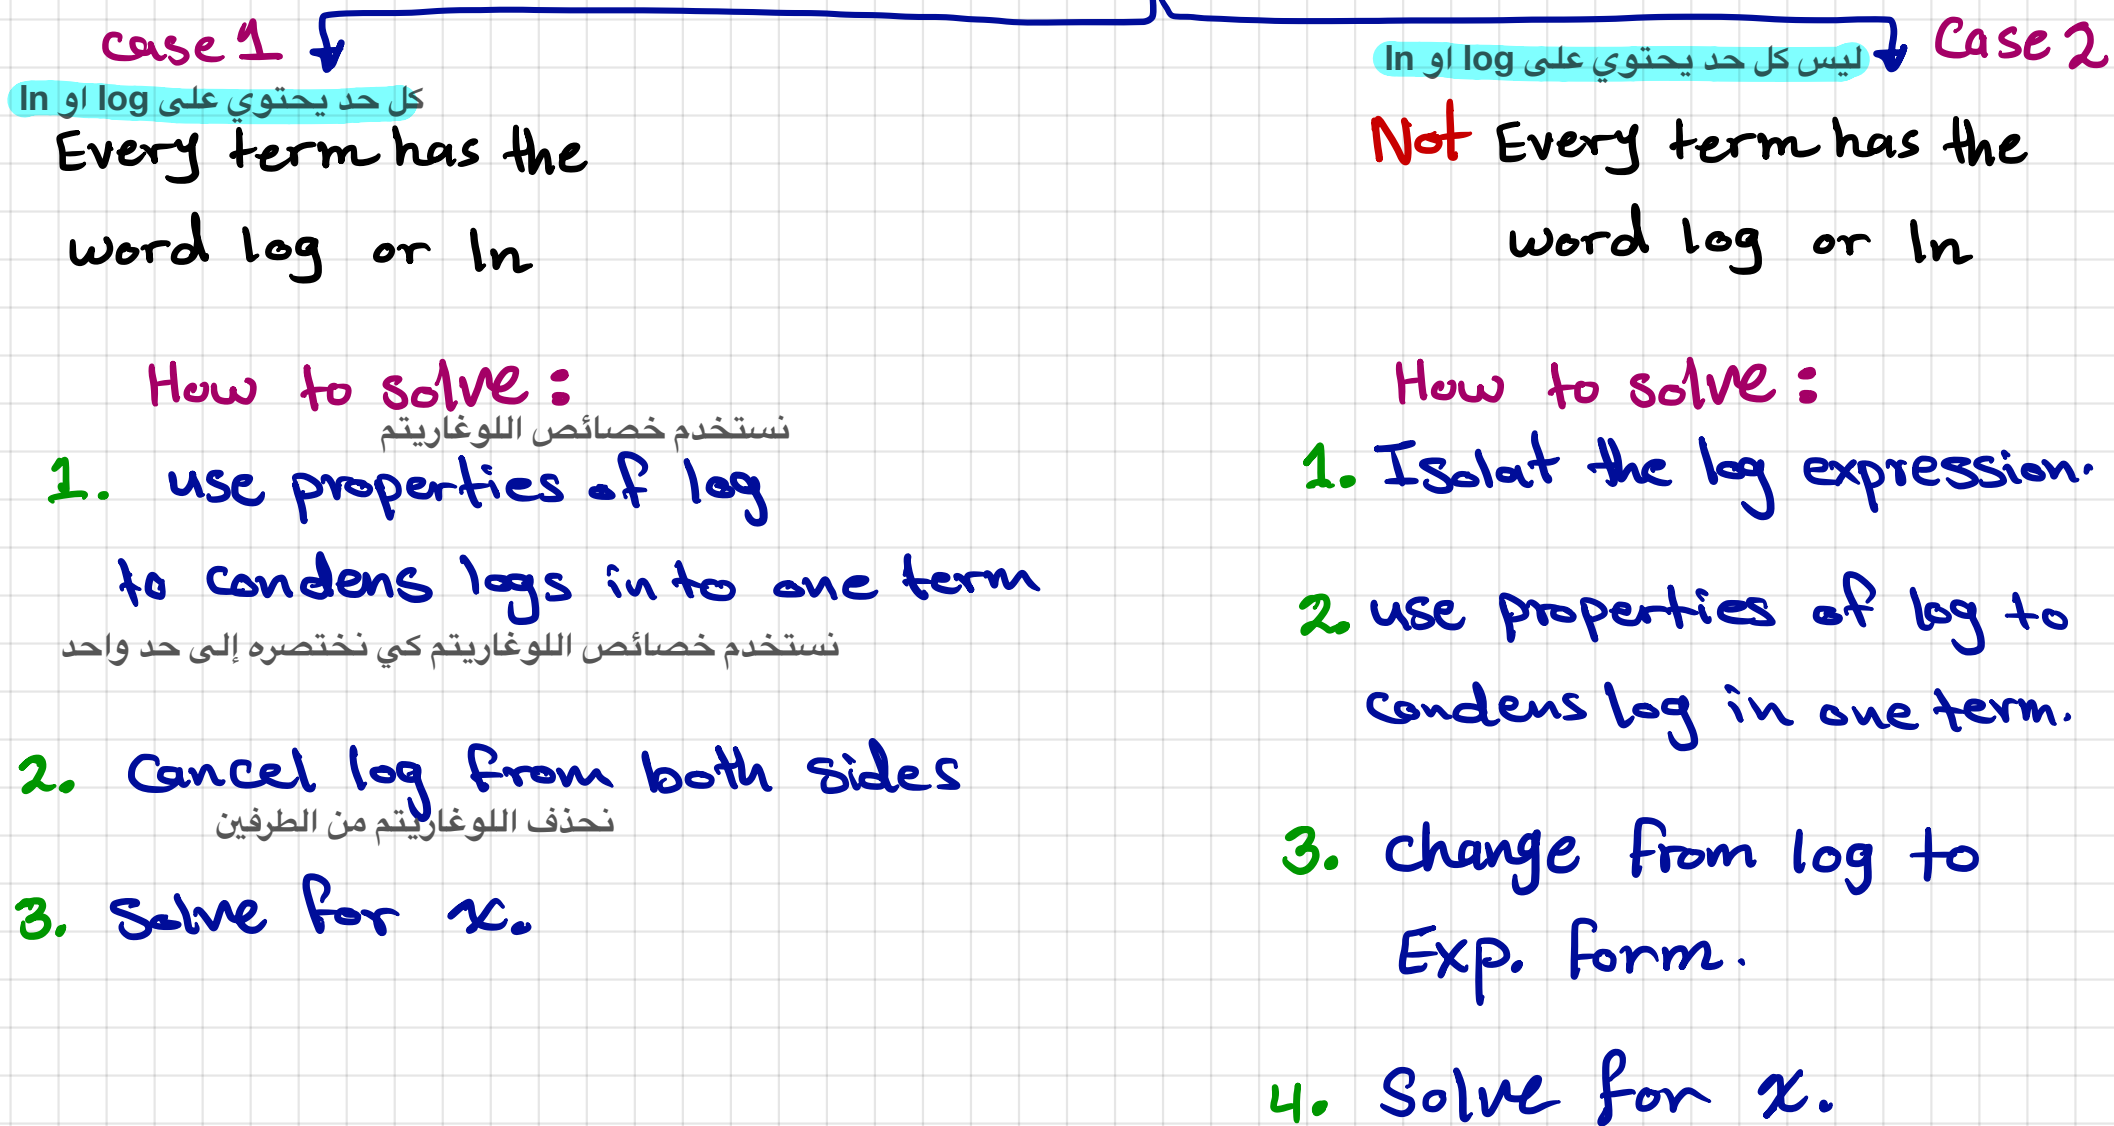 case 1
كل حد يحتوي على log او ln
Every term has the
word log or ln
How to solve:
نستخدم خصائص اللوغاريتم
1. use properties of log
to condens logs in to one term
نستخدم خصائص اللوغاريتم كي نختصره إلى حد واحد
2. Cancel log from both sides
نحذف اللوغاريتم من الطرفين
3. Solve for x.
Case 2
ليس كل حد يحتوي على log او ln
Not Every term has the
word log or ln
How to solve:
1. Isolat the log expression.
2. use properties of log to
condens log in one term.
3. change from log to
Exp. form.
4. Solve for x.